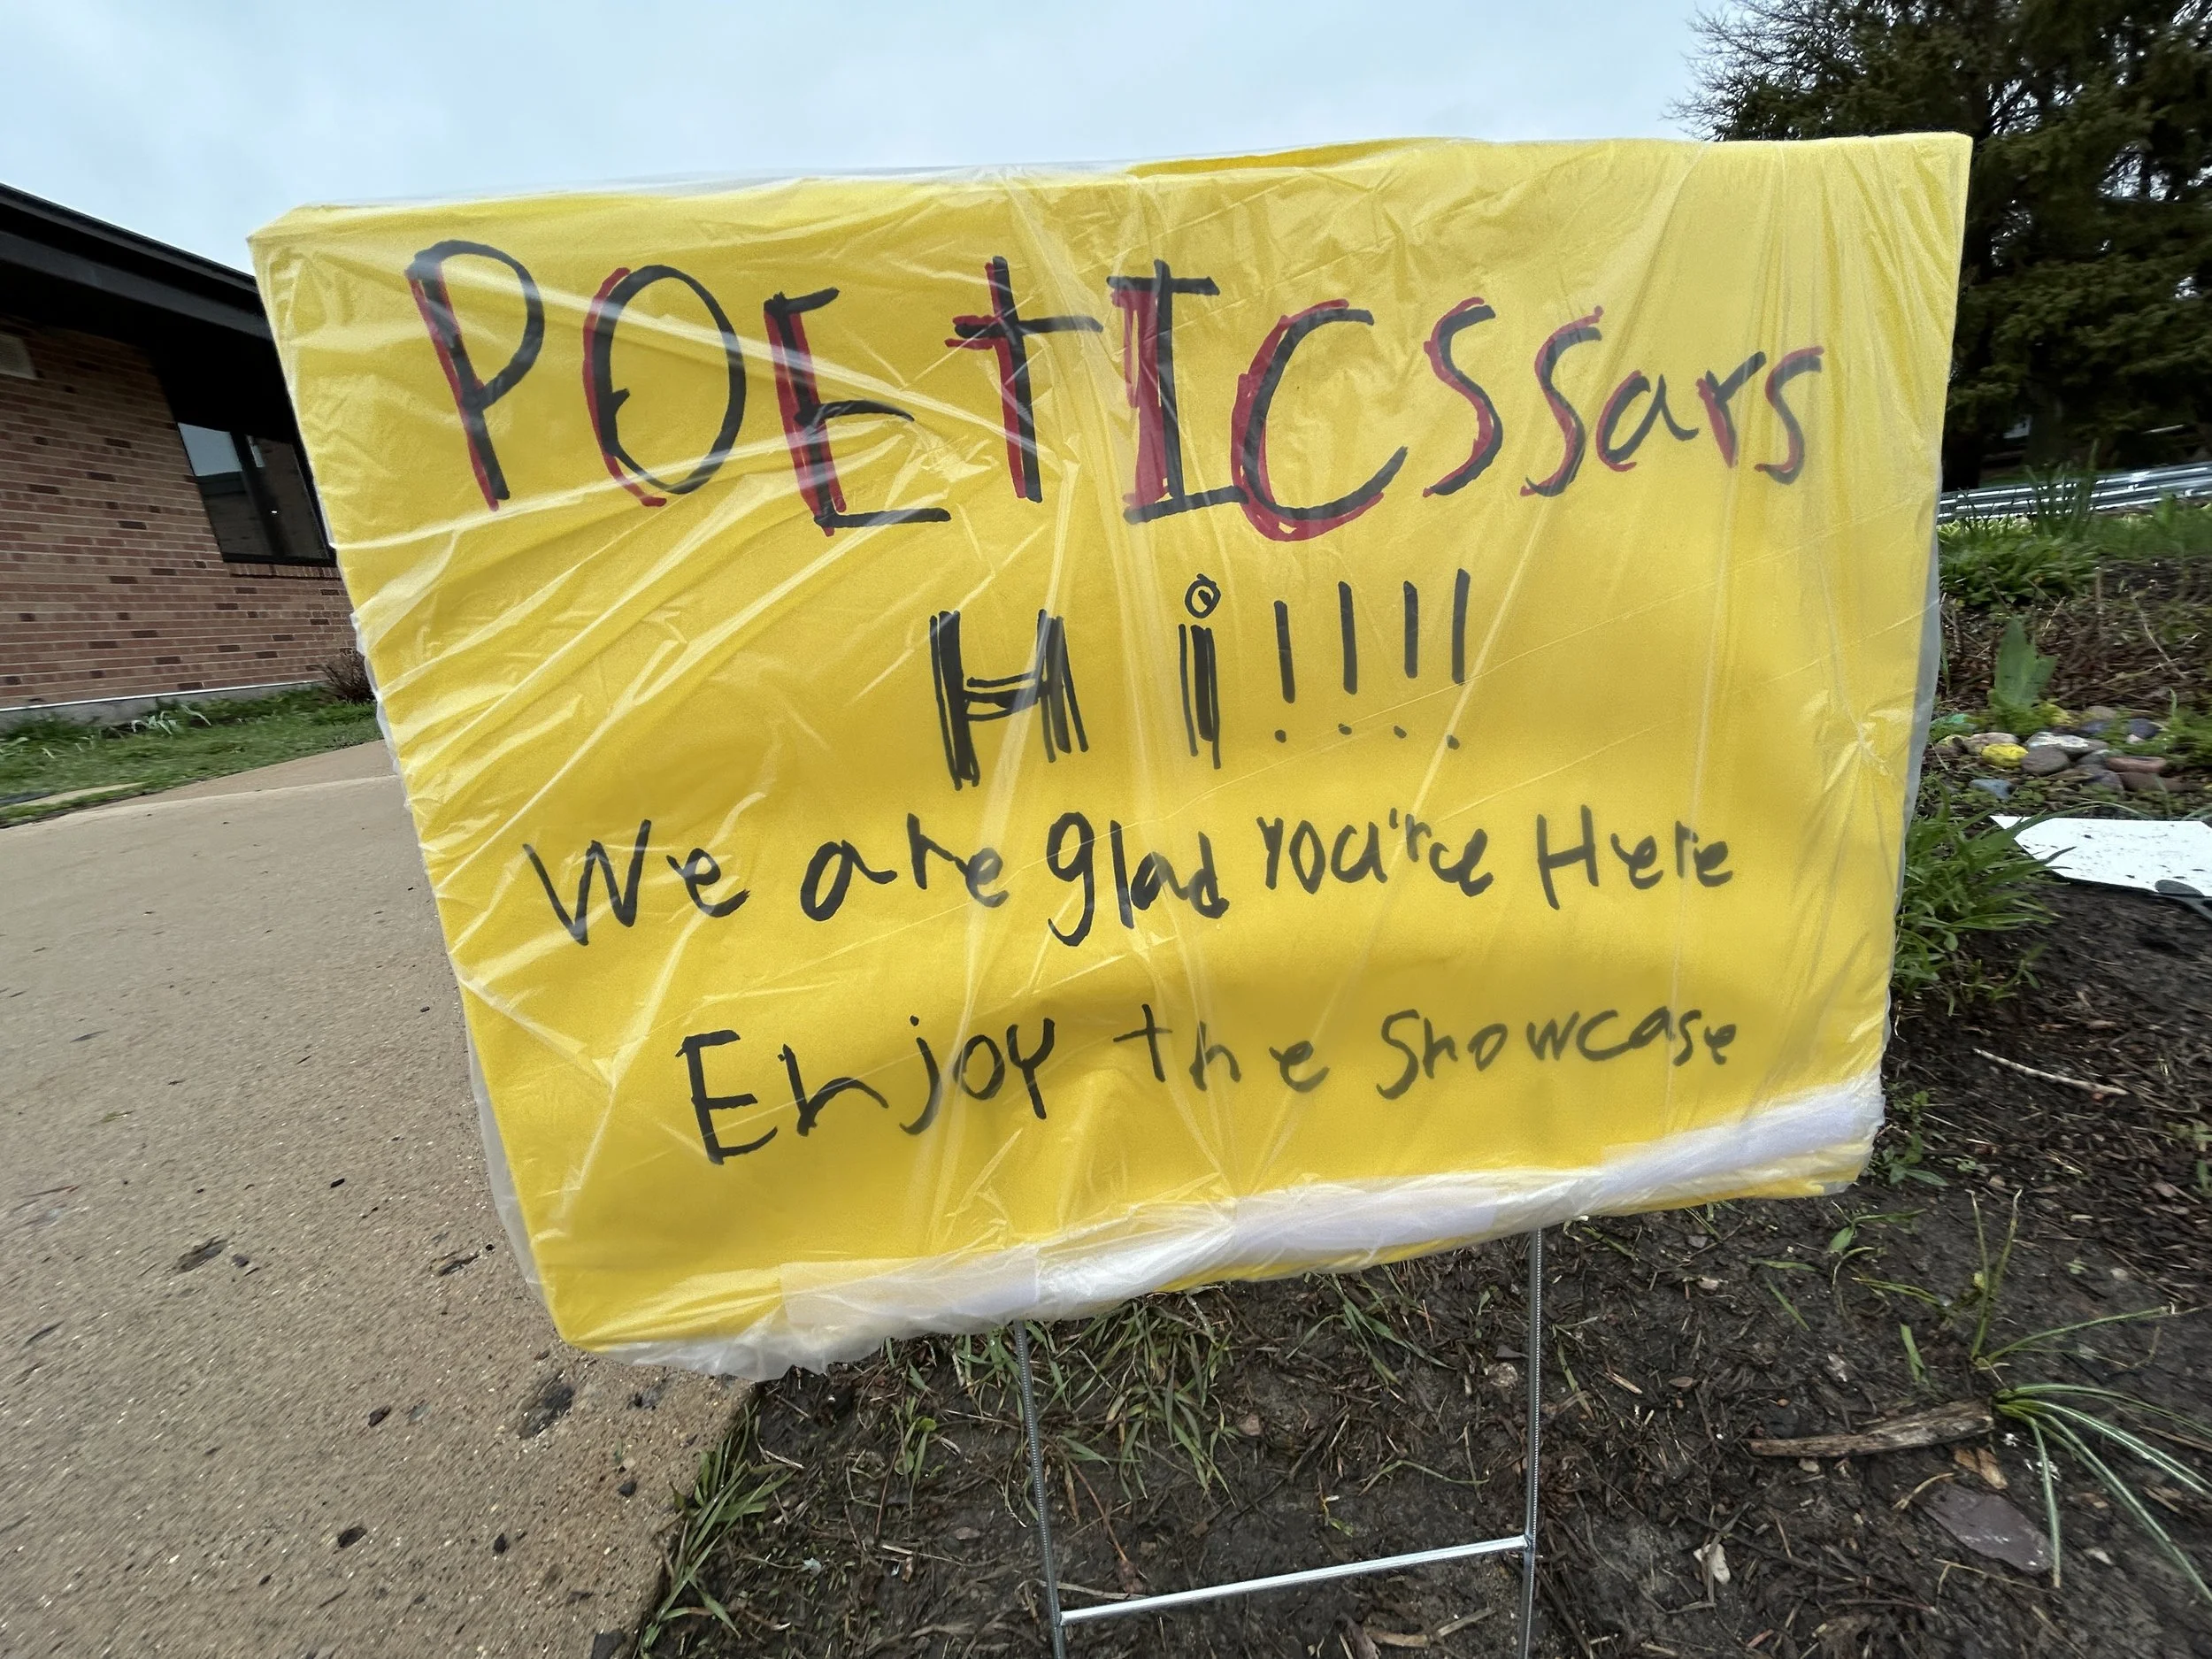 POEtICssars
Hi!!!!
We are glad you're Here
Enjoy the Showcase